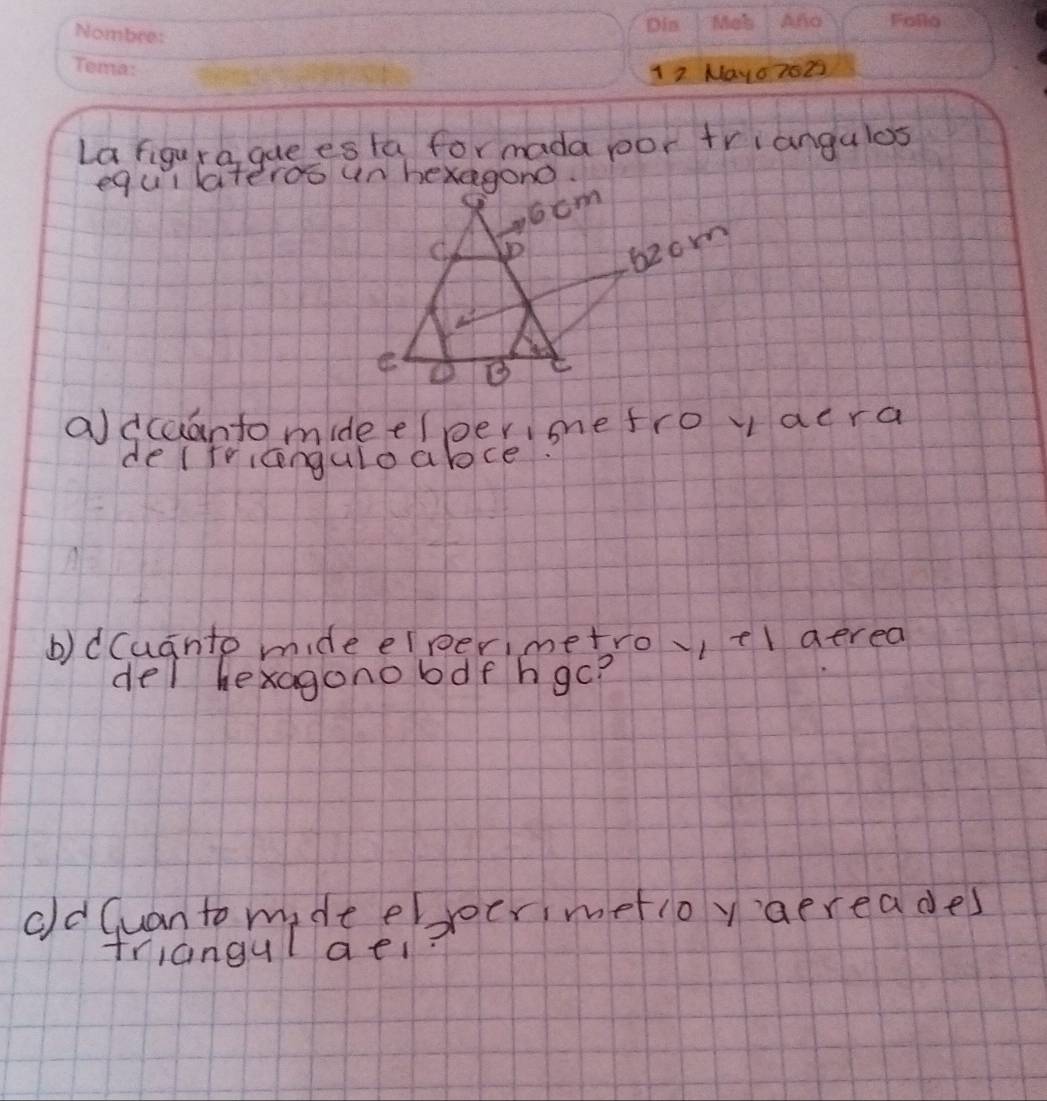 Nombre:
Día Mes Año Folio
Tema:
12 Mayo 2022
La figura, que esta formada por triangulos
equilateros un hexagono.
6cm
C D
520m
e D B C
a) ¿cuánto mide el perimetro y aera
del triangulo abce.
b) ¿Cuánto mide el perimetro y, el aerea
del hexagono bdf hgc?
c) ¿Cuanto mide el perimetro y aerea del
triangul aei?